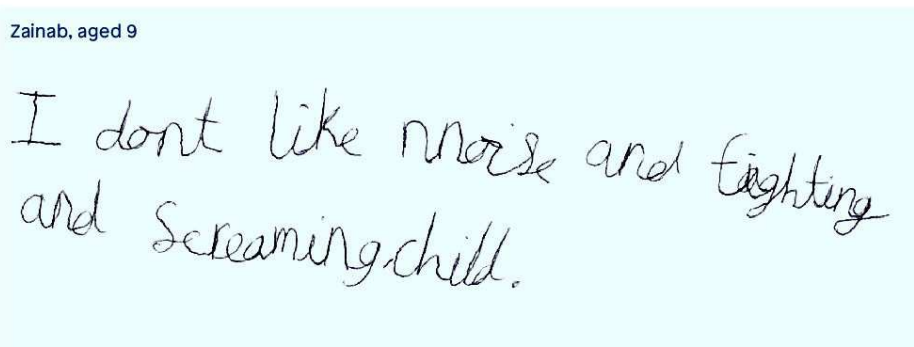 Zainab, aged 9
I dont like nnoise and fighting
and screaming.child.